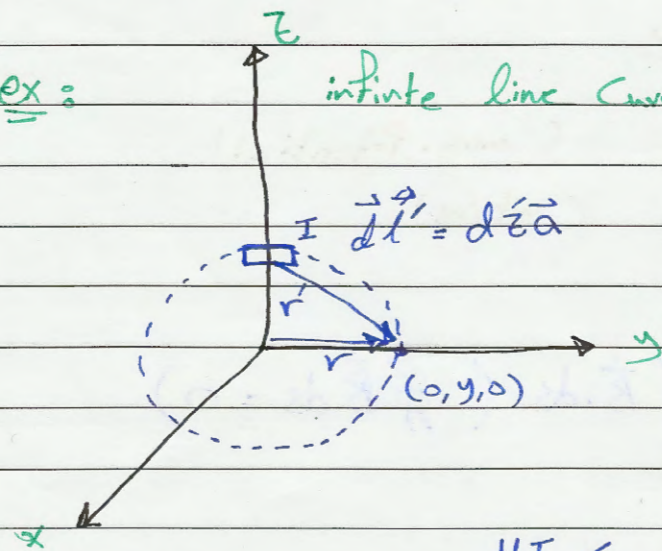 z
ex: infinte line
I d⃗l' = dźa⃗
r'
r
y
(0,y,0)
x
μI